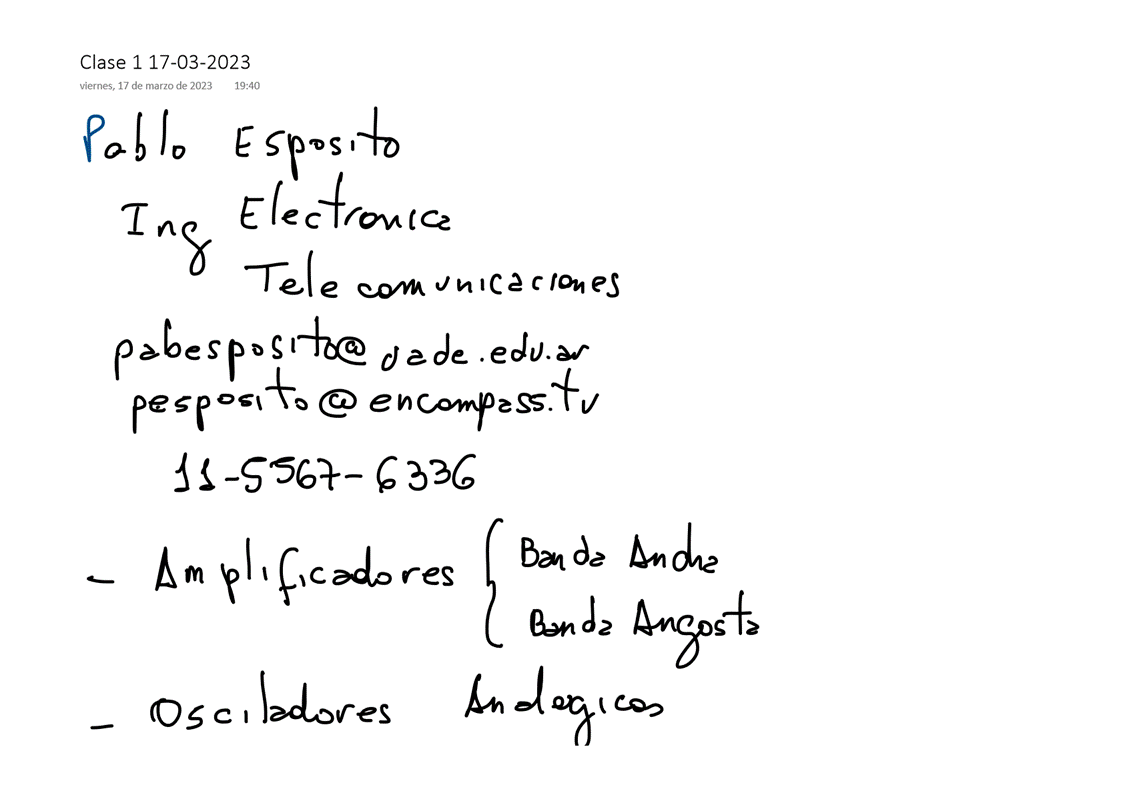 Clase 1 17-03-2023
viernes, 17 de marzo de 2023 19:40
Pablo Esposito
Ing Electronica
Telecomunicaciones
pabesposito@uade.edu.ar
pesposito@encompass.tv
11-5567-6336
- Amplificadores { Banda Ancha
Banda Angosta
- Osciladores Analogicos